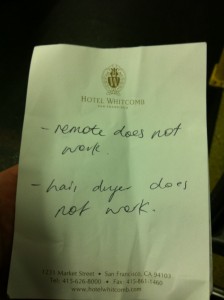 HOTEL WHITCOMB
SAN FRANCISCO
- remote does not
work.
- hair dryer does
not work.
1231 Market Street • San Francisco, CA 94103
Tel: 415-626-8000 • Fax: 415-861-1460
www.hotelwhitcomb.com